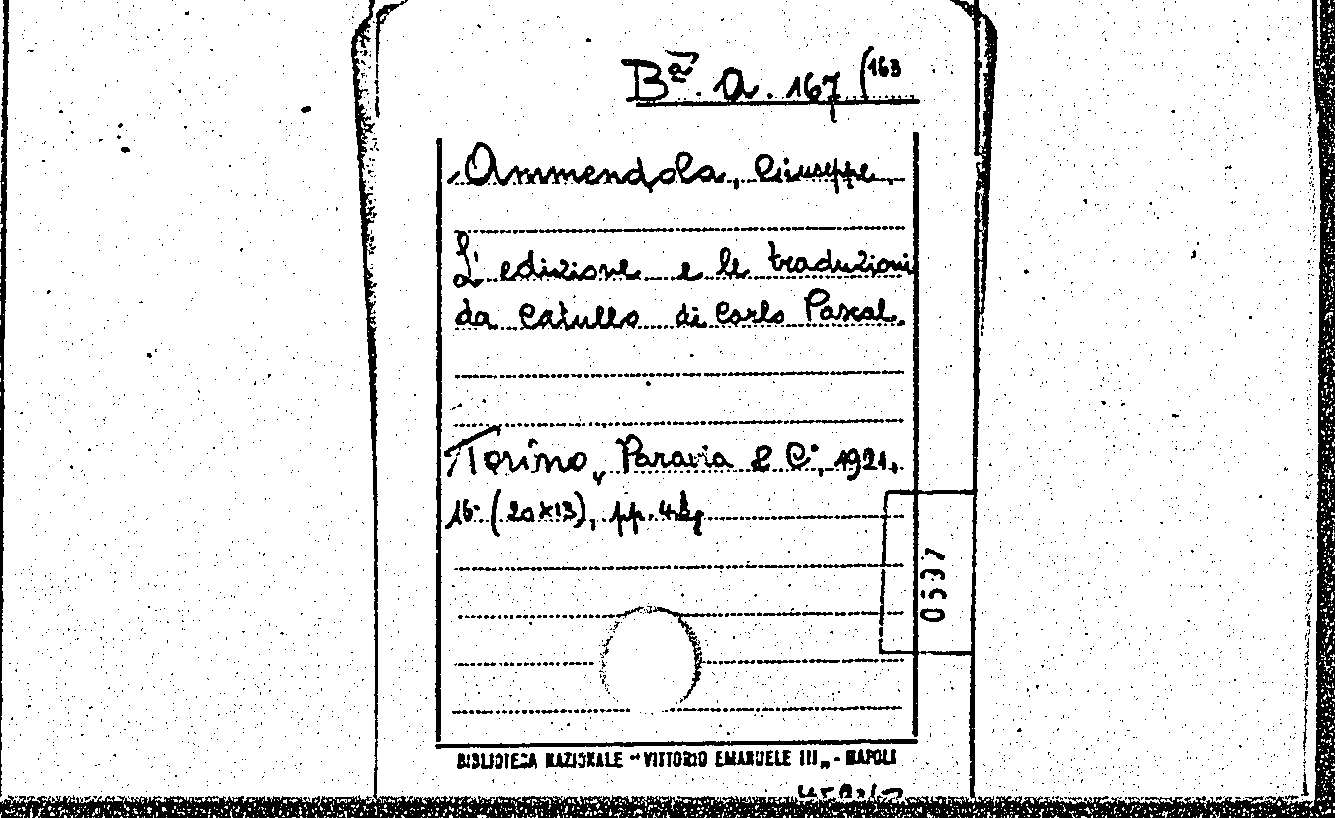 Bª. A. 167 (163
Ammendola, Giuseppe.
L'edizione e le traduzioni
da Catullo di Carlo Pascal.
Torino, Paravia & C.°, 1921,
16° (20x13), pp.
0597
BIBLIOTECA NAZIONALE "VITTORIO EMANUELE III„ - NAPOLI